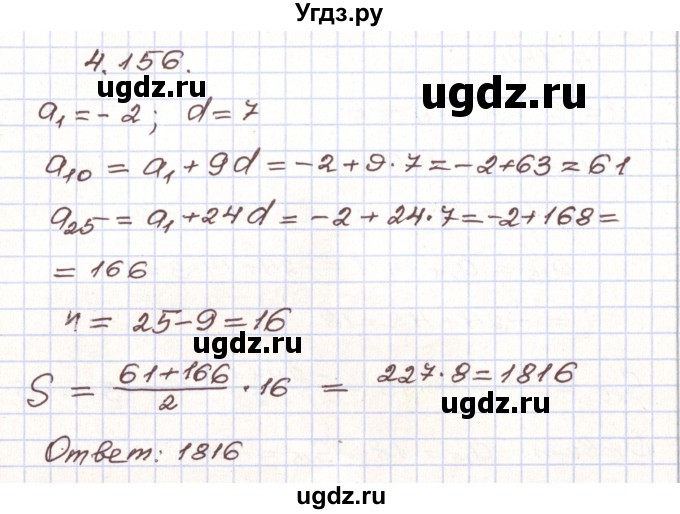 Угдз.ру
4.156.
ugdz.ru
ugdz.ru
a₁ = - 2 ; d = 7
a₁₀ = a₁ + 9d = -2 + 9·7 = -2+63 = 61
a₂₅ = a₁ + 24d = -2 + 24·7 = -2+168 =
= 166
n = 25-9 = 16
ugdz.ru
S = (61+166)/2 · 16 = 227·8 = 1816
ugdz.ru
Ответ: 1816
ugdz.ru